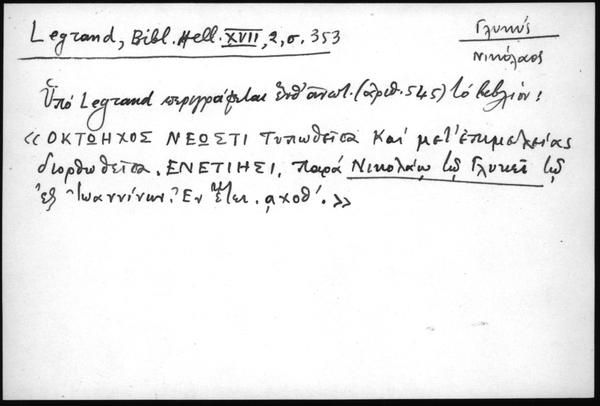 Legrand, Bibl. Hell. XVII, 2, σ. 353
Γλυκύς
Νικόλαος
Ὑπό Legrand περιγράφεται ἐνθ' ἀνωτ. (ἀριθ. 545) τό βιβλίον:
«ΟΚΤΩΗΧΟΣ ΝΕΩΣΤΙ Τυπωθεῖσα καί μετ' ἐπιμελείας
διορθωθεῖσα. ΕΝΕΤΙΗΣΙ, παρά Νικολάῳ τῷ Γλυκεῖ τῷ
ἐξ Ἰωαννίνων. Ἐν ἔτει. αχοθ'.»